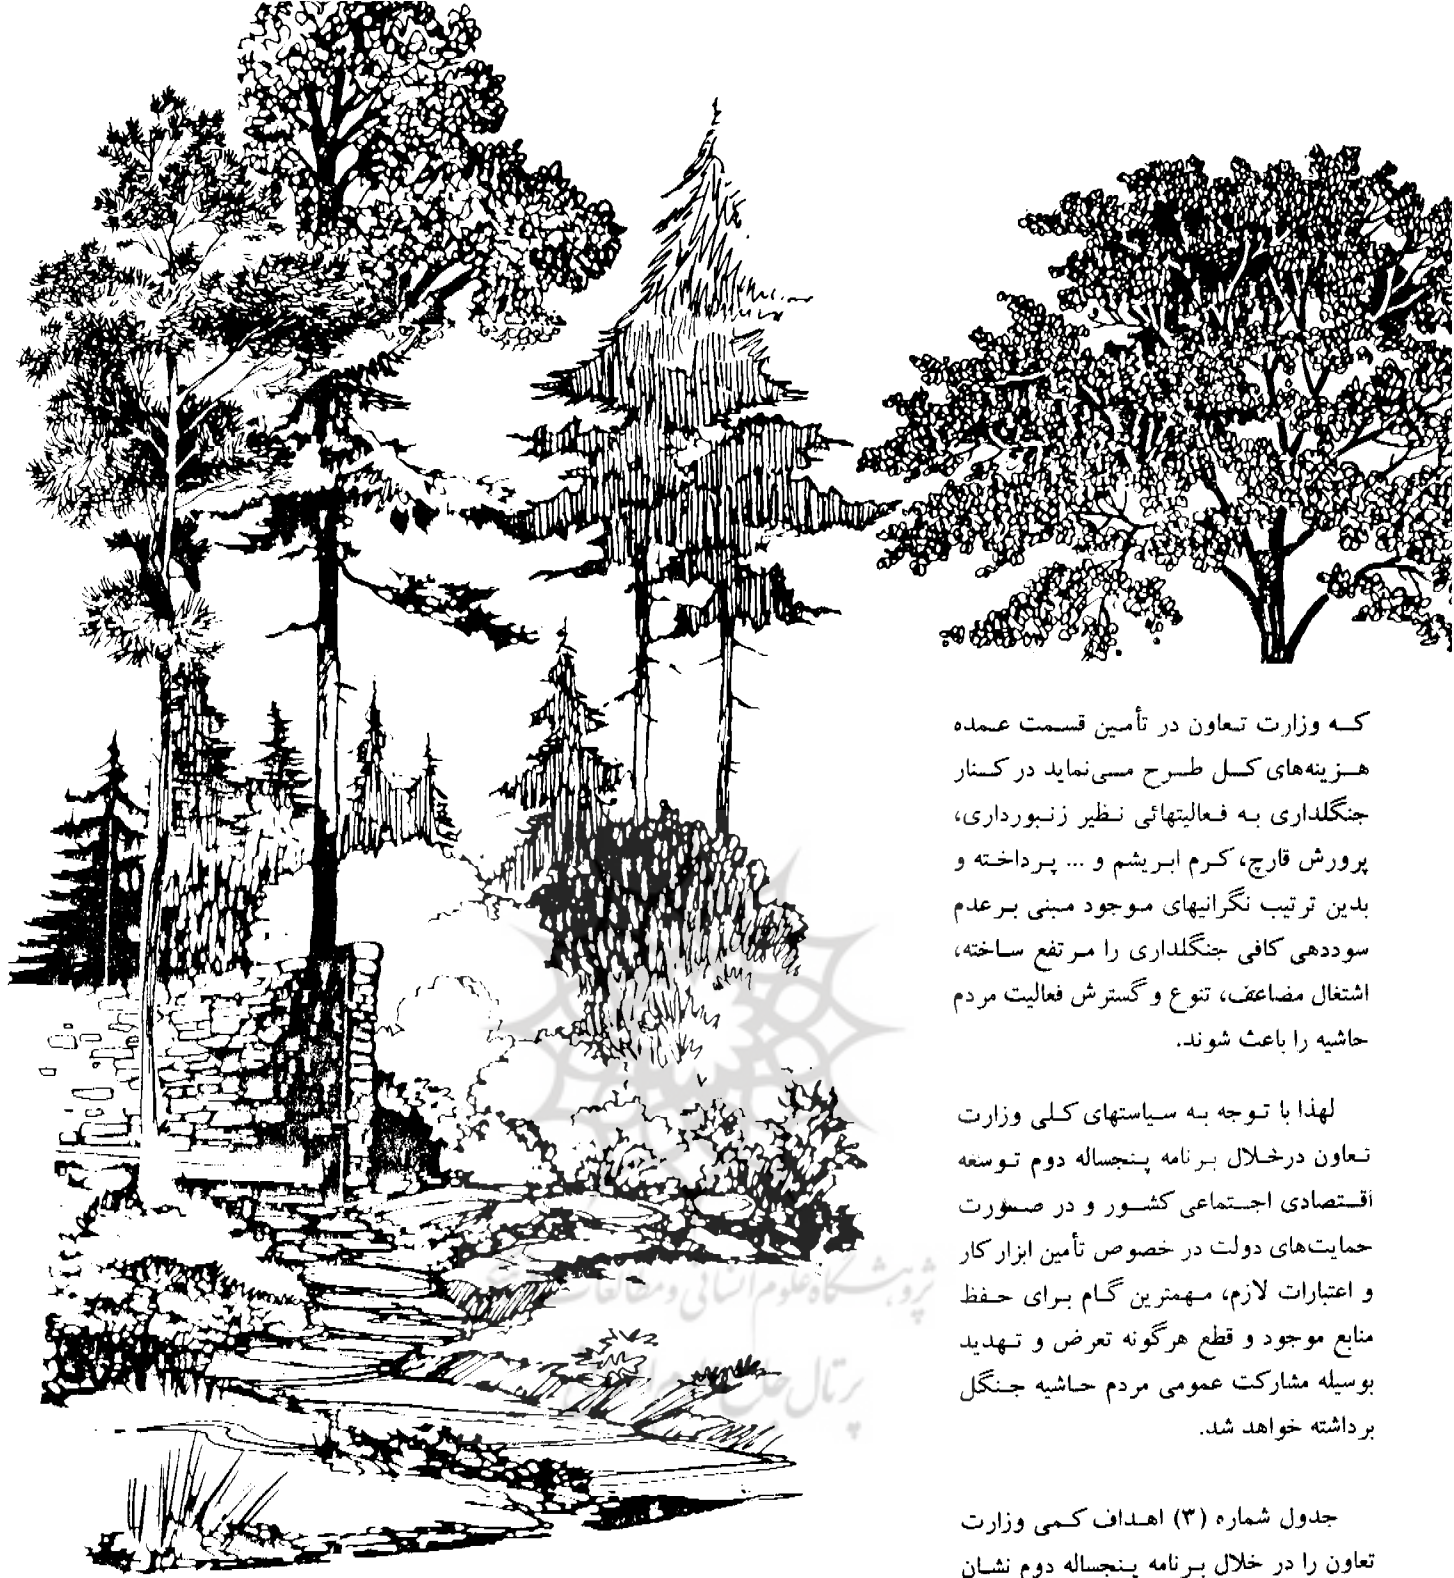 که وزارت تعاون در تأمین قسمت عمده
هزینه‌های کل طرح می‌نماید در کنار
جنگلداری به فعالیتهائی نظیر زنبورداری،
پرورش قارچ، کرم ابریشم و ... پرداخته و
بدین ترتیب نگرانیهای موجود مبنی بر عدم
سوددهی کافی جنگلداری را مرتفع ساخته،
اشتغال مضاعف، تنوع و گسترش فعالیت مردم
حاشیه را باعث شوند.
لهذا با توجه به سیاستهای کلی وزارت
تعاون درخلال برنامه پنجساله دوم توسعه
اقتصادی اجتماعی کشور و در صورت
حمایت‌های دولت در خصوص تأمین ابزار کار
و اعتبارات لازم، مهمترین گام برای حفظ
منابع موجود و قطع هرگونه تعرض و تهدید
بوسیله مشارکت عمومی مردم حاشیه جنگل
برداشته خواهد شد.
جدول شماره (۳) اهداف کمی وزارت
تعاون را در خلال برنامه پنجساله دوم نشان
پژوهشگاه علوم انسانی و مطالعات
پرتال جامع علوم انسانی